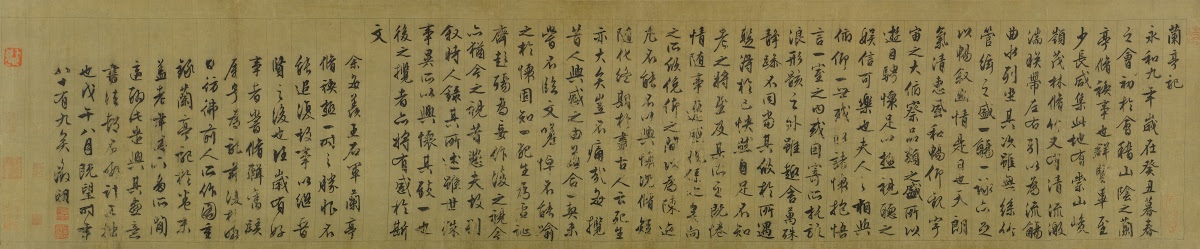 蘭亭記
永和九年歲在癸丑暮春
之會初於會稽山陰之蘭
亭脩禊事也群賢畢至
少長咸集此地有崇山峻
嶺茂林脩竹又有清流激
湍映帶左右引以為流觴
曲水列坐其次雖無絲竹
管絃之盛一觴一詠亦足
以暢敘幽情是日也天朗
氣清惠風和暢仰觀宇
宙之大俯察品類之盛所以
遊目騁懷足以極視聽之
娛信可樂也夫人之相與
俯仰一世或取諸懷抱悟
言一室之內或因寄所託放
浪形骸之外雖趣舍萬殊
靜躁不同當其欣於所遇
暫得於己快然自足不知
老之將至及其所之既惓
情隨事遷感慨係之矣向
之所欣俛仰之間以為陳迹
尤不能不以興懷況脩短
隨化終期於盡古人云死生
亦大矣豈不痛哉每攬
昔人興感之由若合一契未
嘗不臨文嗟悼不能喻
之於懷固知一死生為虛誕
齊彭殤為妄作後之視今
亦猶今之視昔悲夫故列
敘時人錄其所述雖世殊
事異所以興懷其致一也
後之攬者亦將有感於斯
文
余每羨王右軍蘭亭
脩禊一時之勝恨不
能追復故事以繼晉
賢之後也往歲有好
事者嘗脩輯舊蹟
屬予為記
日彷彿前人所作圖重
錄蘭亭記於卷末
蓋老年以為間
適
書法不計工拙
也戊午八月既望明書
八十有九矣徵明